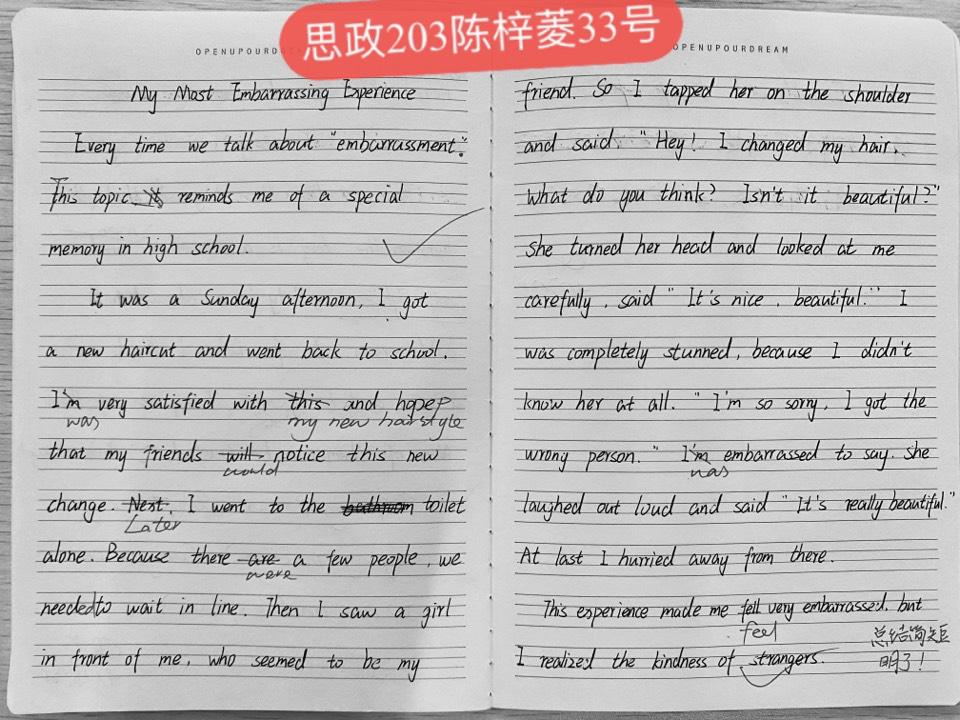 思政203陈梓菱33号
OPENUPOURD
OPENUPOURDREAM
My Most Embarrassing Experience
Every time we talk about "embarrassment".
This topic it reminds me of a special
memory in high school.
It was a Sunday afternoon, I got
a new haircut and went back to school.
I'm very satisfied with this and hoped
was my new hairstyle
that my friends will notice this new
would
change. Next, I went to the bathroom toilet
Later
alone. Because there are a few people, we
were
needed to wait in line. Then I saw a girl
in front of me, who seemed to be my
friend. So I tapped her on the shoulder
and said, "Hey! I changed my hair,
What do you think? Isn't it beautiful?"
She turned her head and looked at me
carefully, said "It's nice, beautiful." I
was completely stunned, because I didn't
know her at all. "I'm so sorry, I got the
wrong person." I'm embarrassed to say. She
was
laughed out loud and said "It's really beautiful."
At last I hurried away from there.
This experience made me fell very embarrassed, but
feel
I realized the kindness of strangers.
总结简短
明了!